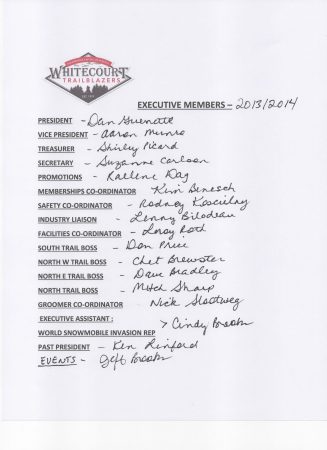 WHITECOURT
TRAILBLAZERS
EXECUTIVE MEMBERS – 2013/2014
PRESIDENT – Dan Guenette
VICE PRESIDENT – Aaron Munro
TREASURER – Shirley Picard
SECRETARY – Suzanne Carlson
PROMOTIONS – Raelene Day
MEMBERSHIPS CO-ORDINATOR Kim Benesch
SAFETY CO-ORDINATOR – Rodney
INDUSTRY LIAISON – Lenny Bilodeau
FACILITIES CO-ORDINATOR – Leroy
SOUTH TRAIL BOSS – Don Price
NORTH W TRAIL BOSS – Chet Brewster
NORTH E TRAIL BOSS – Dave Bradley
NORTH TRAIL BOSS – Mitch Sharp
GROOMER CO-ORDINATOR Nick Slootweg
EXECUTIVE ASSISTANT :
> Cindy
WORLD SNOWMOBILE INVASION REP
PAST PRESIDENT – Ken
EVENTS – Jeff